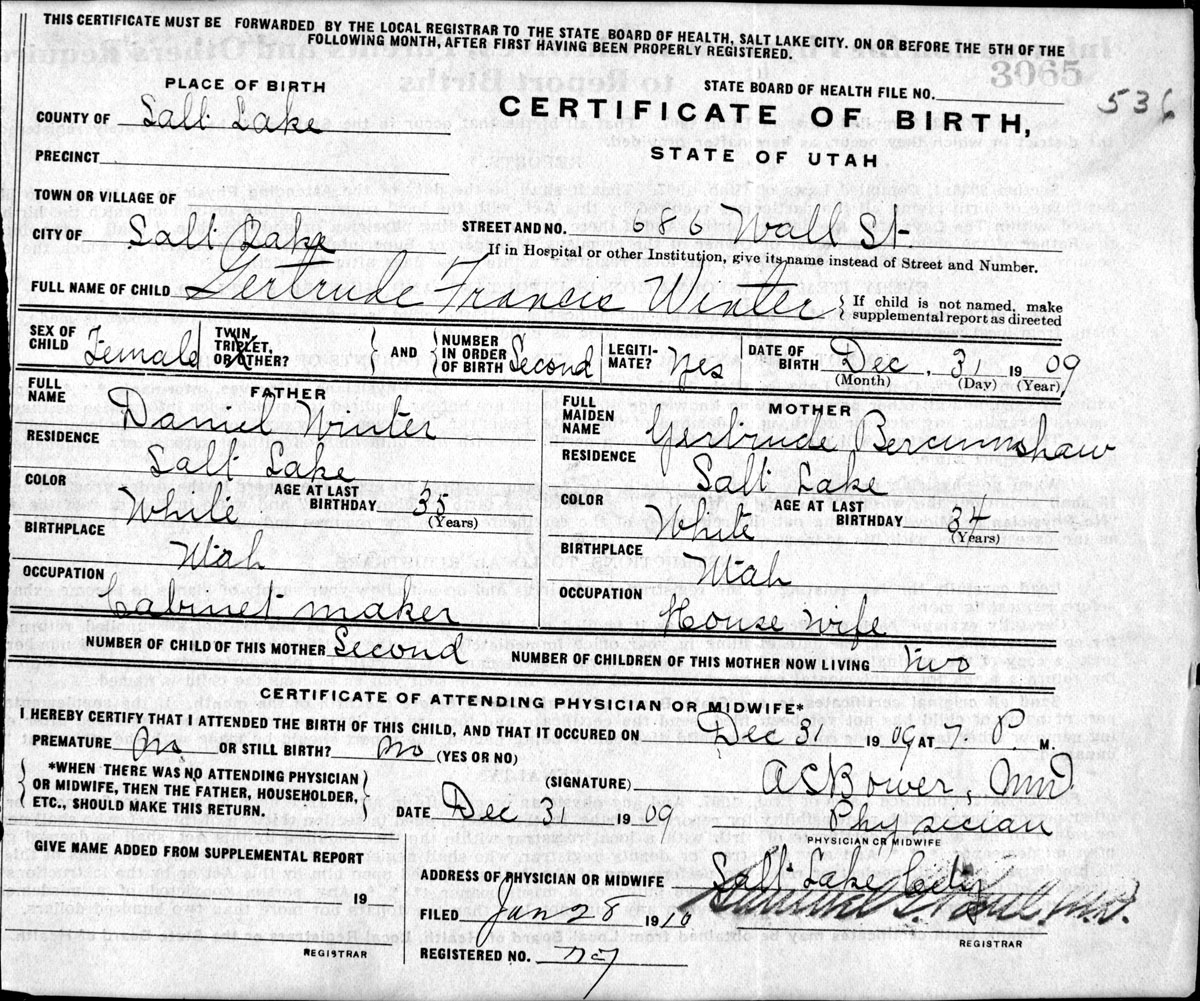 THIS CERTIFICATE MUST BE FORWARDED BY THE LOCAL REGISTRAR TO THE STATE BOARD OF HEALTH, SALT LAKE CITY. ON OR BEFORE THE 5TH OF THE
FOLLOWING MONTH, AFTER FIRST HAVING BEEN PROPERLY REGISTERED.
3065
PLACE OF BIRTH
STATE BOARD OF HEALTH FILE NO.
536
COUNTY OF Salt Lake
CERTIFICATE OF BIRTH,
PRECINCT
STATE OF UTAH
TOWN OR VILLAGE OF
CITY OF Salt Lake
STREET AND NO. 686 Wall St.
If in Hospital or other Institution, give its name instead of Street and Number.
FULL NAME OF CHILD Gertrude Francis Winter
{ If child is not named, make
supplemental report as directed
SEX OF CHILD Female
TWIN, TRIPLET, OR OTHER?
} AND {
NUMBER IN ORDER OF BIRTH Second
LEGITI-MATE? Yes
DATE OF BIRTH Dec. 31 1909
(Month) (Day) (Year),
FATHER
FULL NAME Daniel Winter
RESIDENCE Salt Lake
COLOR White
AGE AT LAST BIRTHDAY 35
(Years)
BIRTHPLACE Utah
OCCUPATION Cabinet maker
MOTHER
FULL MAIDEN NAME Gertrude
RESIDENCE Salt Lake
COLOR White
AGE AT LAST BIRTHDAY 34
(Years)
BIRTHPLACE Utah
OCCUPATION House wife
NUMBER OF CHILD OF THIS MOTHER Second
NUMBER OF CHILDREN OF THIS MOTHER NOW LIVING Two
CERTIFICATE OF ATTENDING PHYSICIAN OR MIDWIFE*
I HEREBY CERTIFY THAT I ATTENDED THE BIRTH OF THIS CHILD, AND THAT IT OCCURED ON Dec 31 1909 AT P M.
PREMATURE No OR STILL BIRTH? No (YES OR NO)
{ *WHEN THERE WAS NO ATTENDING PHYSICIAN
OR MIDWIFE, THEN THE FATHER, HOUSEHOLDER,
ETC., SHOULD MAKE THIS RETURN. }
(SIGNATURE) A S Bower, M.D.
DATE Dec 31 1909
Physician
PHYSICIAN OR MIDWIFE
GIVE NAME ADDED FROM SUPPLEMENTAL REPORT
19
REGISTRAR
ADDRESS OF PHYSICIAN OR MIDWIFE Salt Lake City
FILED Jan 28 1910
REGISTRAR
REGISTERED NO.